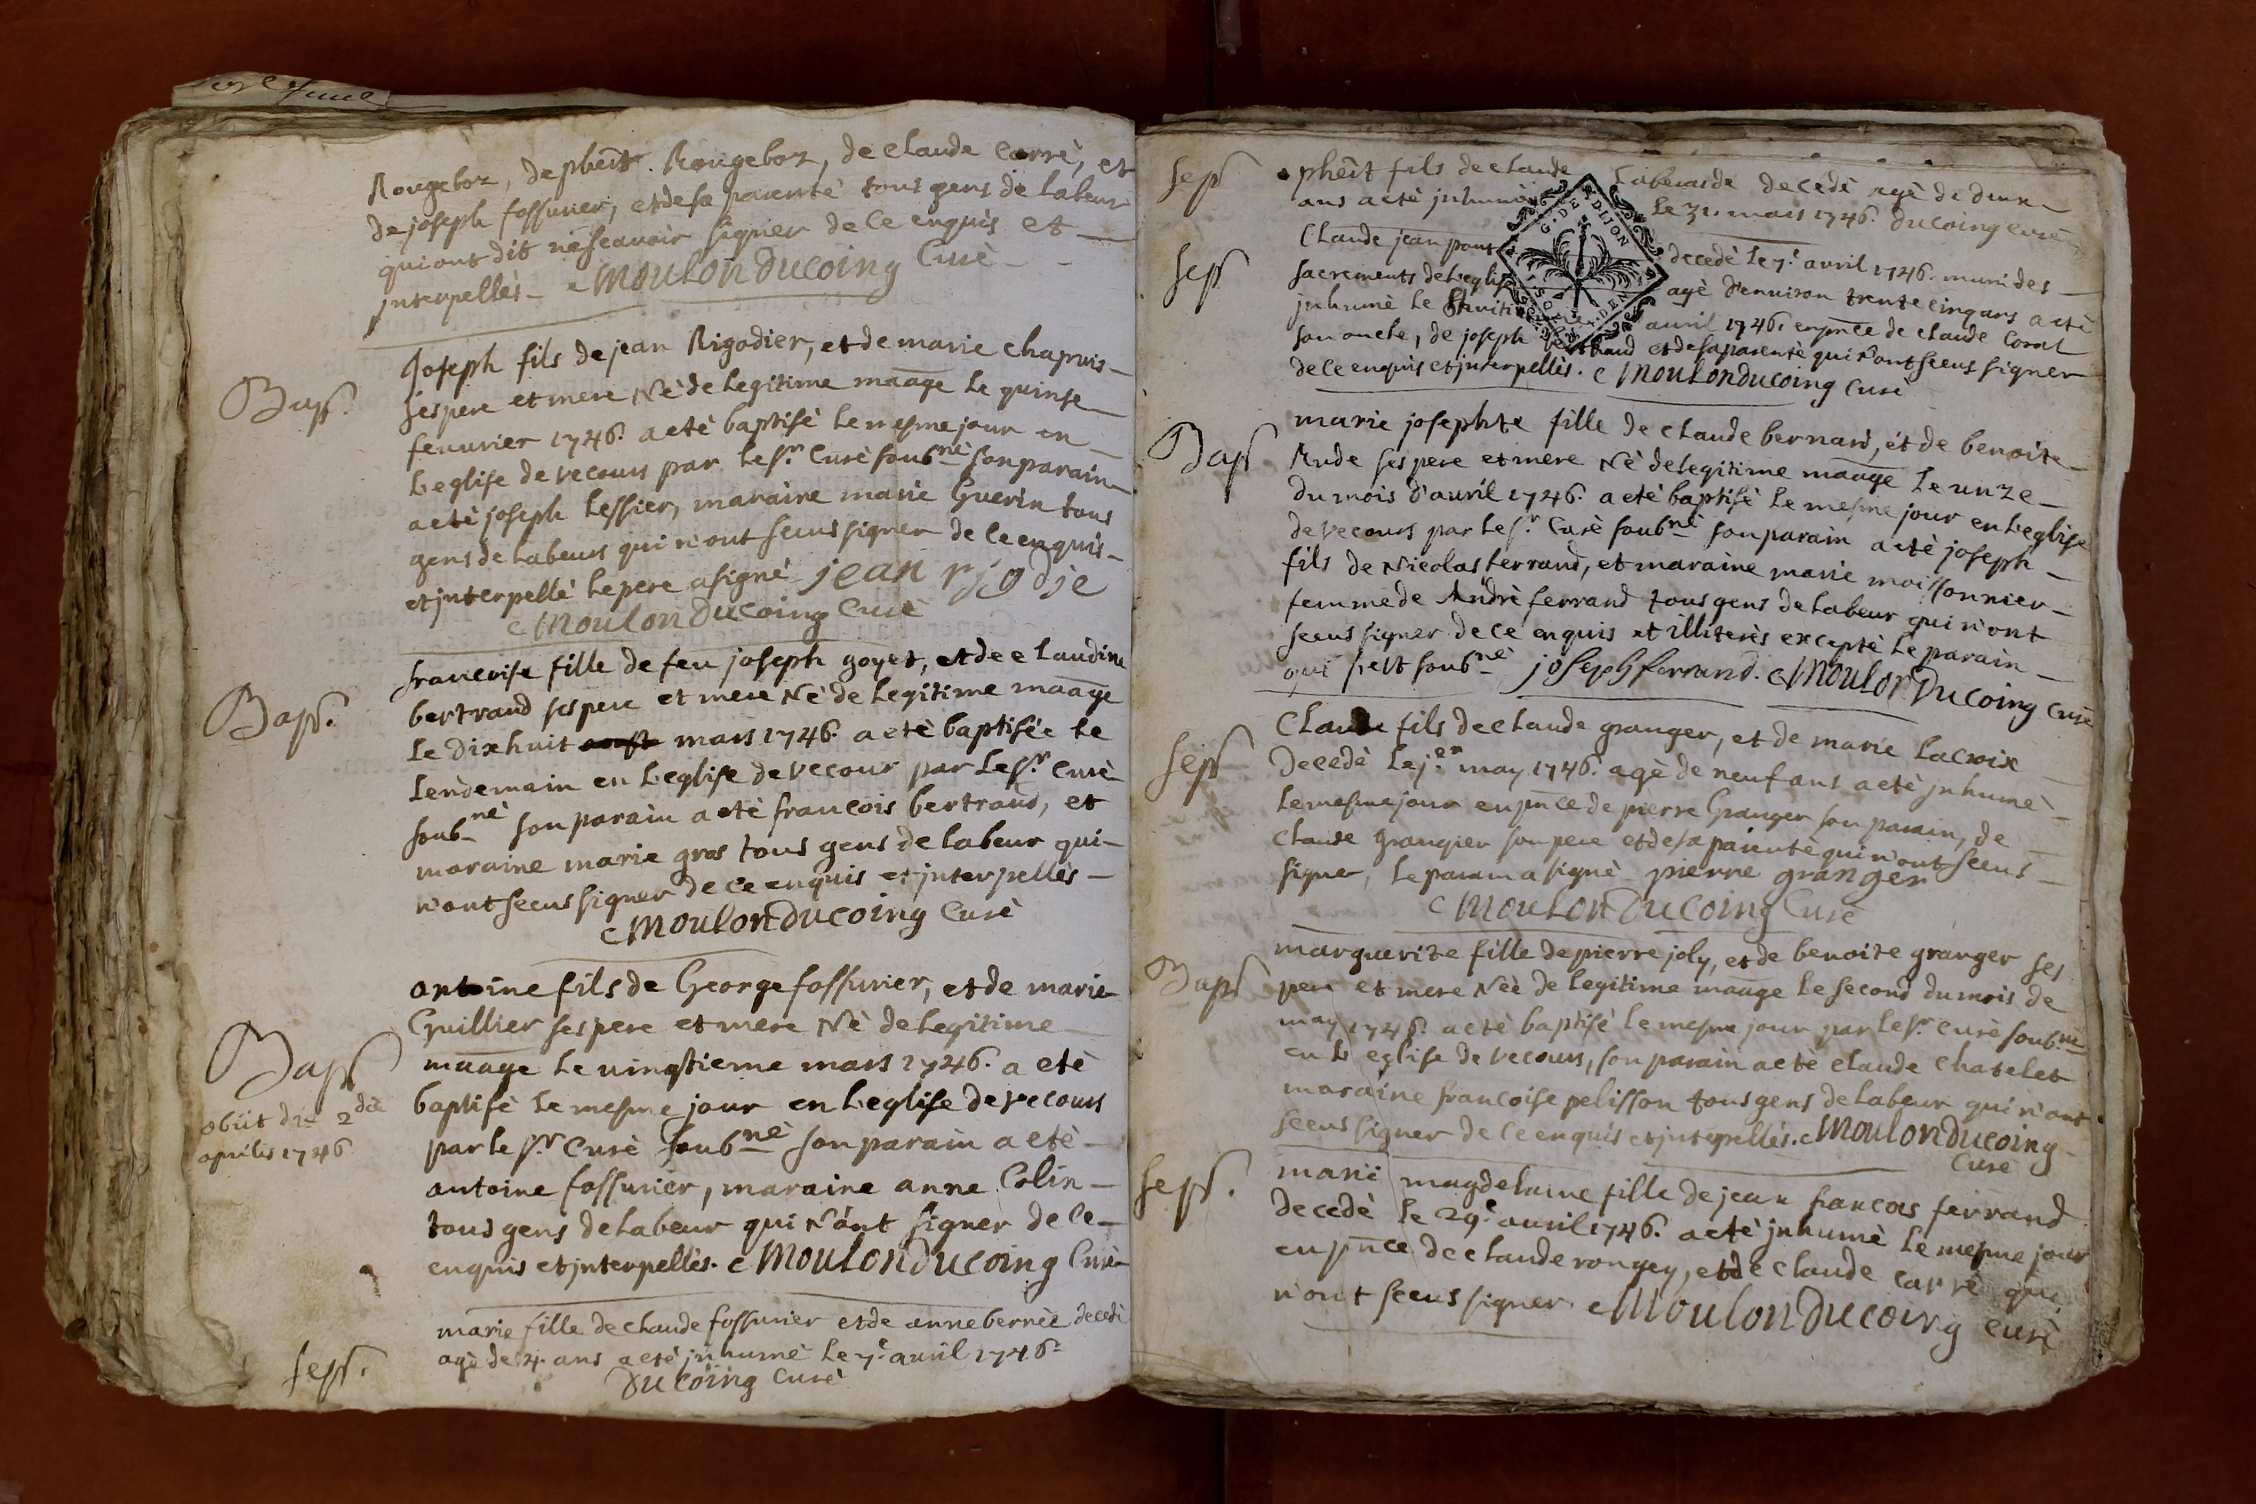 Rougeboz, de phei͞t. Rougeboz, de claude Carré, et
de joseph fossurier, et de sa parenté tous gens de labeur
qui ont dit ne sçavoir signer de ce enquis et
jnterpellès MoulonDucoing Curè
Bapt.
Joseph fils de jean Rigodier, et de marie chapuis
ses pere et mere Nè de legitime maage le quinse
feuurier 1746. a etè baptisè le mesme jour en
l'eglise de vecours par le sr. Curè soubnè son parain
a etè joseph tessier, maraine marie Guerin tous
gens de labeur qui n'ont sceus signer de ce enquis
et jnterpellè le pere a signè jean rjgodje
MoulonDucoing Curè
Bapt.
francoise fille de feu joseph goyet, et de claudine
bertrand ses pere et mere Nè de legitime maage
le dixhuit mars 1746. a etè baptisée le
lendemain en l'eglise de vecour par le sr. Curè
soubnè son parain a etè francois bertrand, et
maraine marie gros tous gens de labeur qui
n'ont sceus signer de ce enquis et jnterpellès
MoulonDucoing Curè
antoine fils de George fossurier, et de marie
Guillier ses pere et mere Nè de legitime
Bapt
maage le uingtieme mars 1746. a etè
baptisè le mesme jour en l'eglise de vecours
obiit die 2da
aprilis 1746
par le sr. Curè soubnè son parain a etè
antoine fossurier, maraine anne Colin
tous gens de labeur qui N'ont signer de ce
enquis et jnterpellès. MoulonDucoing Curè
marie fille de claude fossurier et de anne bernèe decedè
agè de 4. ans a etè jnhumè le 7e. avril 1746.
sept.
Ducoing Curè
sept
phei͞t fils de claude decedè agè de deux
ans a etè jnhumè le 31. mars 1746. Ducoing Curè
G. DE DIJON
sept
Claude jean pont decedè le 7e. avril 1746. muni des
sacrements de l'eglise agè d'enuiron trente cinq ans a etè
jnhumè le avril 1746. en pnce de claude Corat
son oncle, de joseph et de sa parentè qui n'ont sceus signer
de ce enquis et jnterpellès. MoulonDucoing Curè
Bapt
marie josephte fille de claude bernard, et de benoite
Rude ses pere et mere Nè de legitime maage le unze
du mois d'auril 1746. a etè baptisè le mesme jour en l'eglise
de vecours par le sr. Curè soubnè son parain a etè joseph
fils de Nicolas ferrand, et maraine marie moissonnier
femme de Andrè ferrand tous gens de labeur qui n'ont
sceus signer de ce enquis et illiterès exceptè le parain
qui s'est soubnè joseph ferrand. MoulonDucoing Curè
sept
Claude fils de claude granger, et de marie lacroix
decedè le jer. may 1746. agè de neuf ans a etè jnhumè
le mesme jour en pnce de pierre Granger son parain, de
claude grangier son pere et de sa parentè qui n'ont sceus
signer, le parain a signè pierre granger
MoulonDucoing Curè
Bapt
marguerite fille de pierre joly, et de benoite granger ses
pere et mere Neè de legitime maage le second du mois de
may 1746. a etè baptisè le mesme jour par le sr. curè soubnè
en l'eglise de vecours, son parain a etè claude chatelet
maraine francoise pelisson tous gens de labeur qui n'ont
sceus signer de ce enquis et jnterpellès. MoulonDucoing
Curè
sept.
marie magdelaine fille de jean francois ferrand
decedè le 29e. auril 1746. a etè jnhumè le mesme jour
en pnce de claude rongey, et de claude carrè qui
n'ont sceus signer MoulonDucoing curè